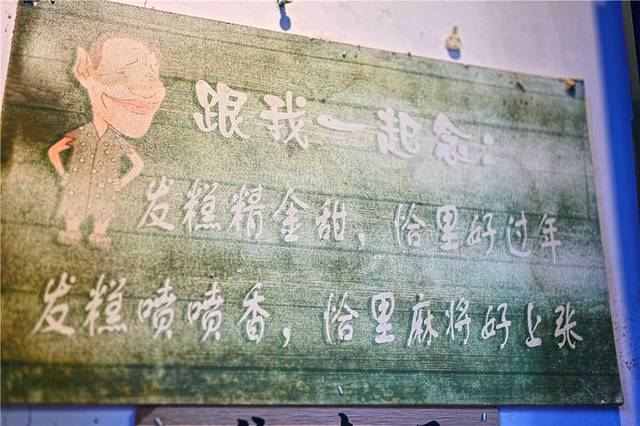 跟我一起念：
发糕精金甜，恰里好过年
发糕喷喷香，恰里麻将好上张